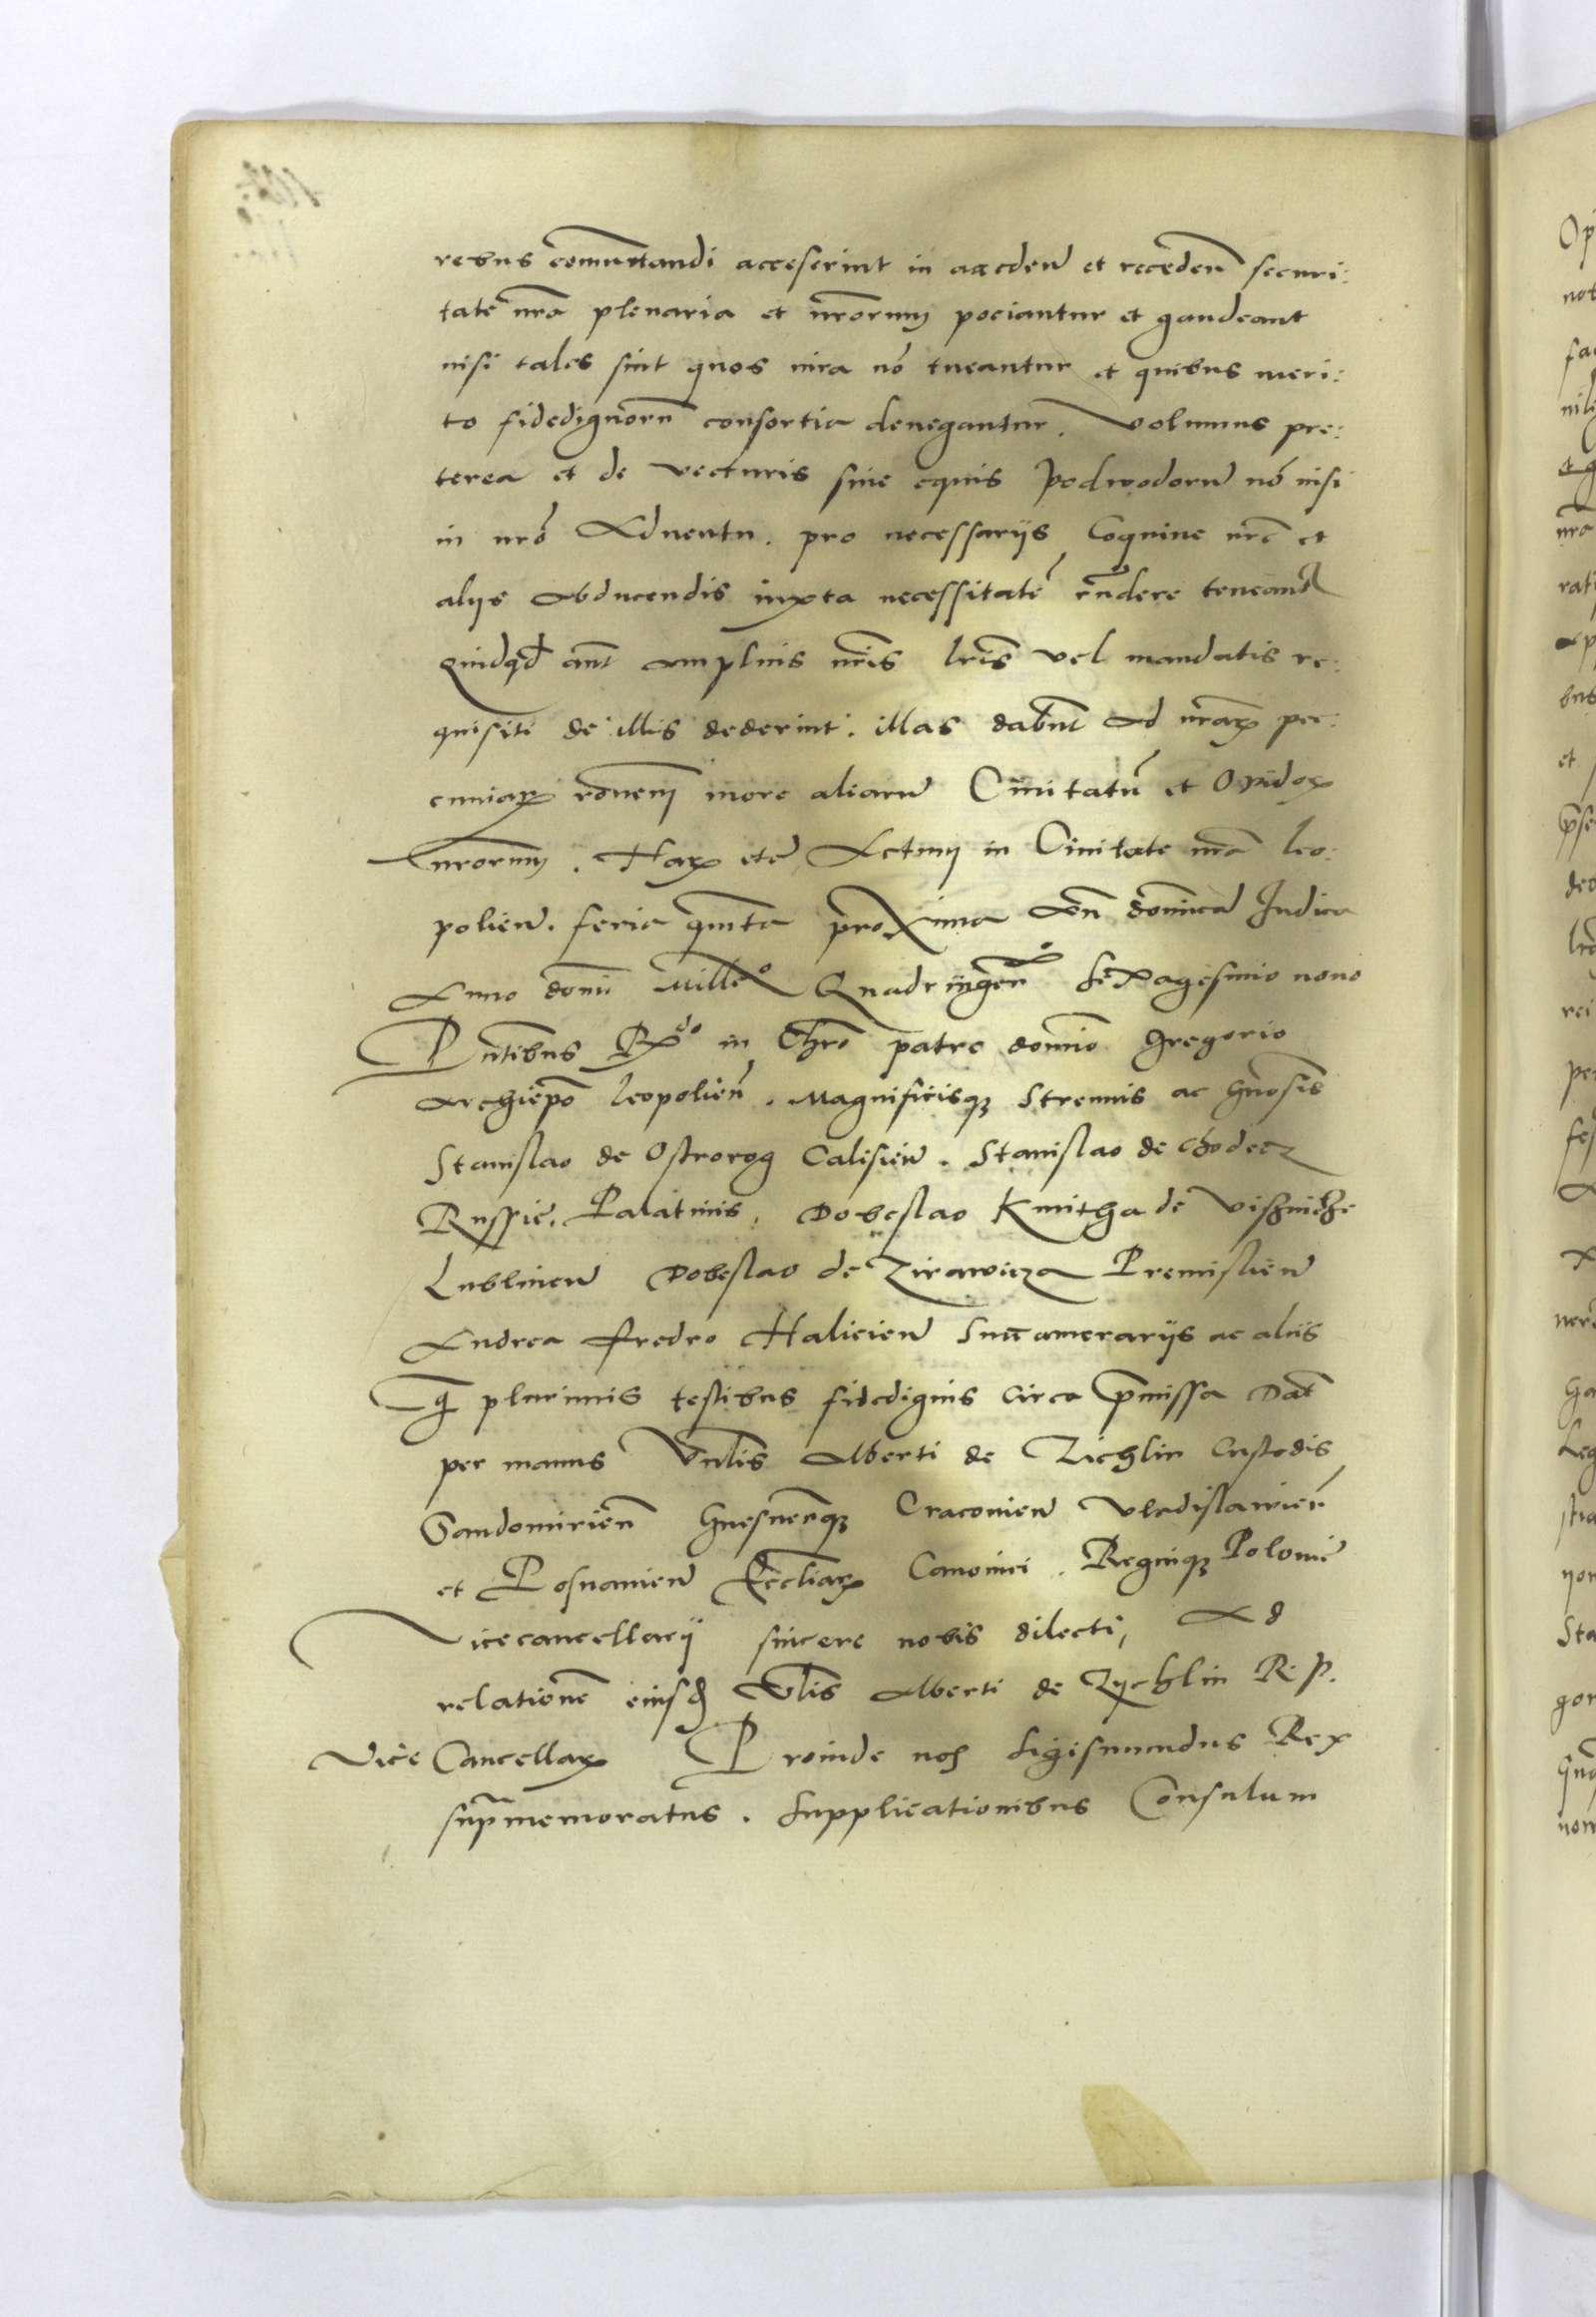 rebus comutandi accesserint in accden et receden securi:
tate nra plenaria et nrorum pociantur et gaudeant
nisi tales sint quos iura no tueantur et quibus meri:
to fidedignoru consortia denegantur. Volumus pre:
terea et de vecturis sine equis Podwodoru no nisi
in nro Adventu. pro necessariis Coquine nre et
aliis abducendis iuxta necessitate rndere teneant
Quidqd aut amplius nris lris vel mandatis re:
quisiti de illis dederint. illas dabunt ad nrar pec:
cuniar ronem more aliaru Civitatu et Opidor
nrorum. Har etc Actum in Civitate nra Leo:
polien. feria quinta proxima an dominica Judica
Anno domi Millo Quadringen Sexagesimo nono
Pntibus Rdo in Chro patre domino Gregorio
Archiepo Leopolien. Magnificisq Strenuis ac Gnosis
Stanislao de Ostrorog Calisien. Stanislao de Chodecz
Russie. Palatinis. Dobeslao Kmitha de Vishnicze
Lublinen Dobeslao de Zirawicza Premislien
Andrea Fredro Halicien Succamerariis ac aliis
q plurimis testibus fidedignis circa pmissa Dat
per manus Vnlis Alberti de Zichlin Custodis
Sandomirien Gnesnenq Cracovien Vladislavien
et Posnanien Eccliar Canonici. Regniq Polonie
Vicecancellarii sincere nobis dilecti, Ad
relationem eiusd Vlis Alberti de Zychlin R. P.
Vice Cancellar Proinde nos Sigismundus Rex
supramemoratus. Supplicationibus Consulum